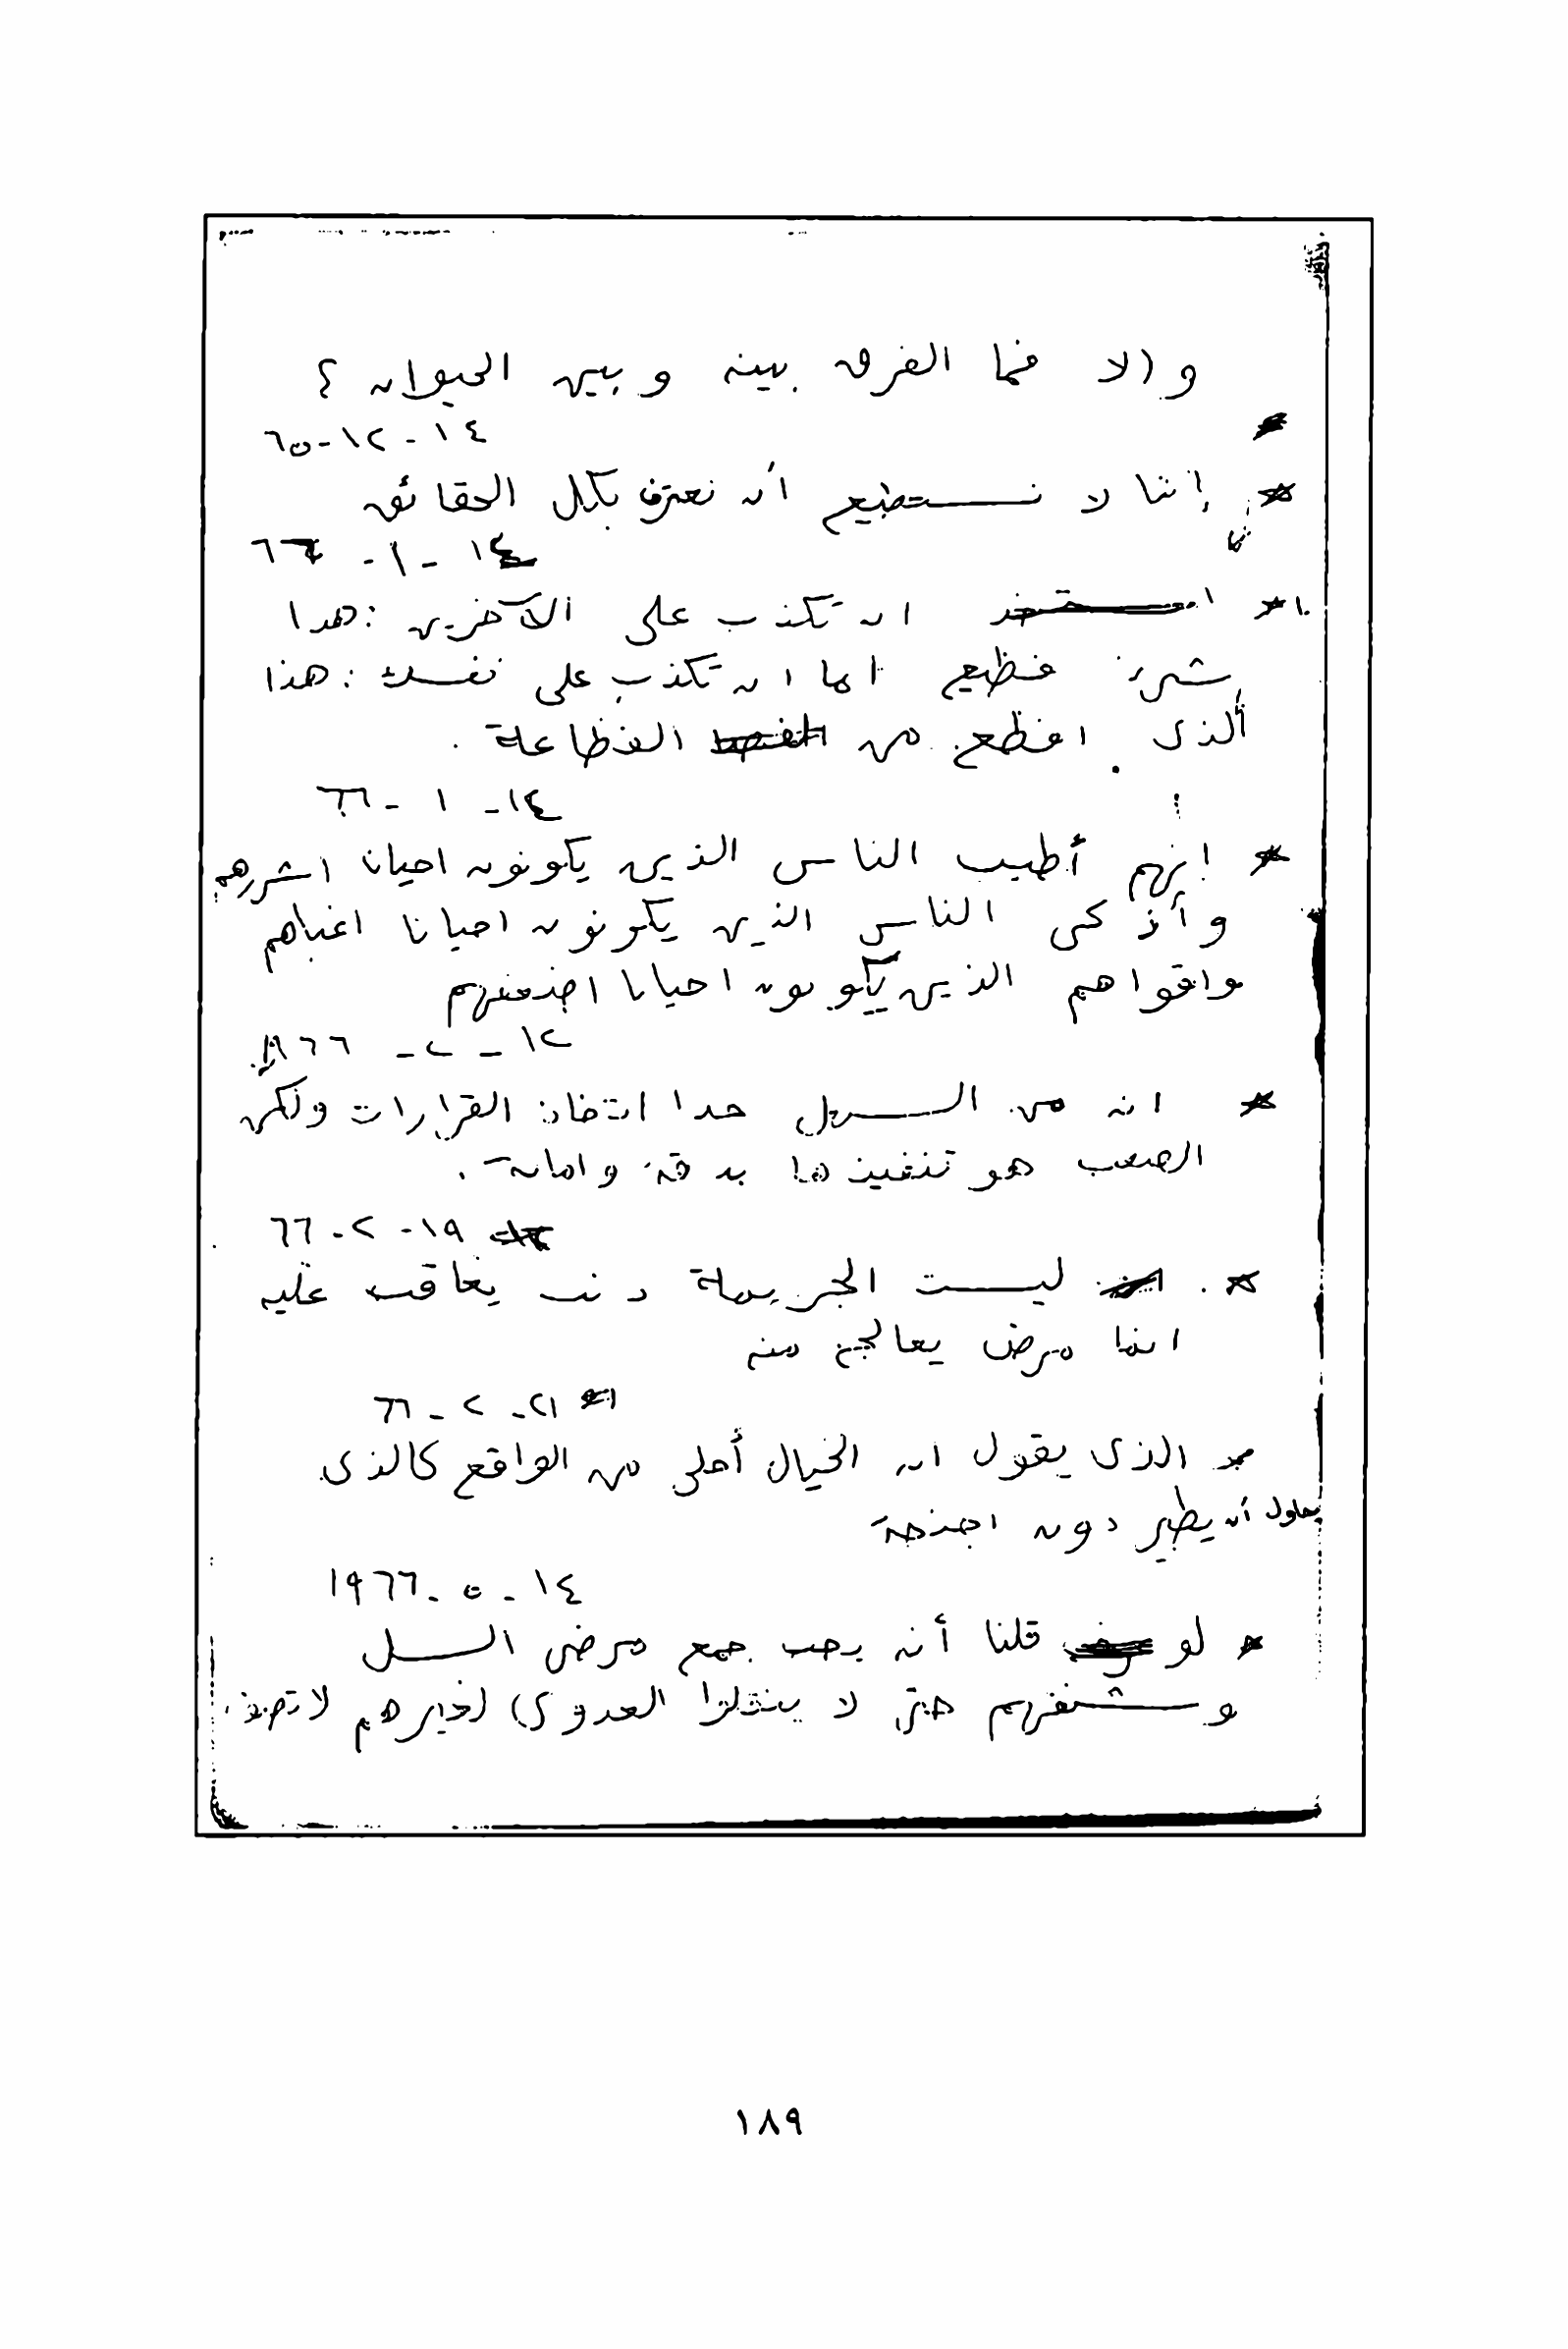 والا فما الفرق بينه وبين الحيوان ؟
١٤ - ١٢ - ٦٥
* إننا لا نستطيع أن نعترف بكل الحقائق
١٤ - ١ - ٦٦
* ان تكذب على الآخرين : هذا
شيء فظيع اما ان تكذب على نفسك : هذا
ألذى افظع من الفظاعة .
١٤ - ١ - ٦٦
* انهم أطيب الناس الذين يكونون احيانا اشررهم
وأذكى الناس الذين يكونون احيانا اغباهم
واقواهم الذين يكونون احيانا اضعفهم
١٢ - ٢ - ١٩٦٦
* انه من السهل جدا اتخاذ القرارات ولكن
الصعب هو تنفيذها بدقة وامانة .
١٩ - ٢ - ٦٦
* ليست الجريمة ذنب يعاقب عليه
انما مرض يعالج منه
٢١ - ٢ - ٦٦
* الذى يقول ان الخيال أحلى من الواقع كالذى
يحاول أن يطير دون اجنحة
١٤ - ٥ - ١٩٦٦
* لو قلنا أنه يجب جمع مرضى السل
وشنقهم حتى لا ينقلوا العدوى لغيرهم
١٨٩